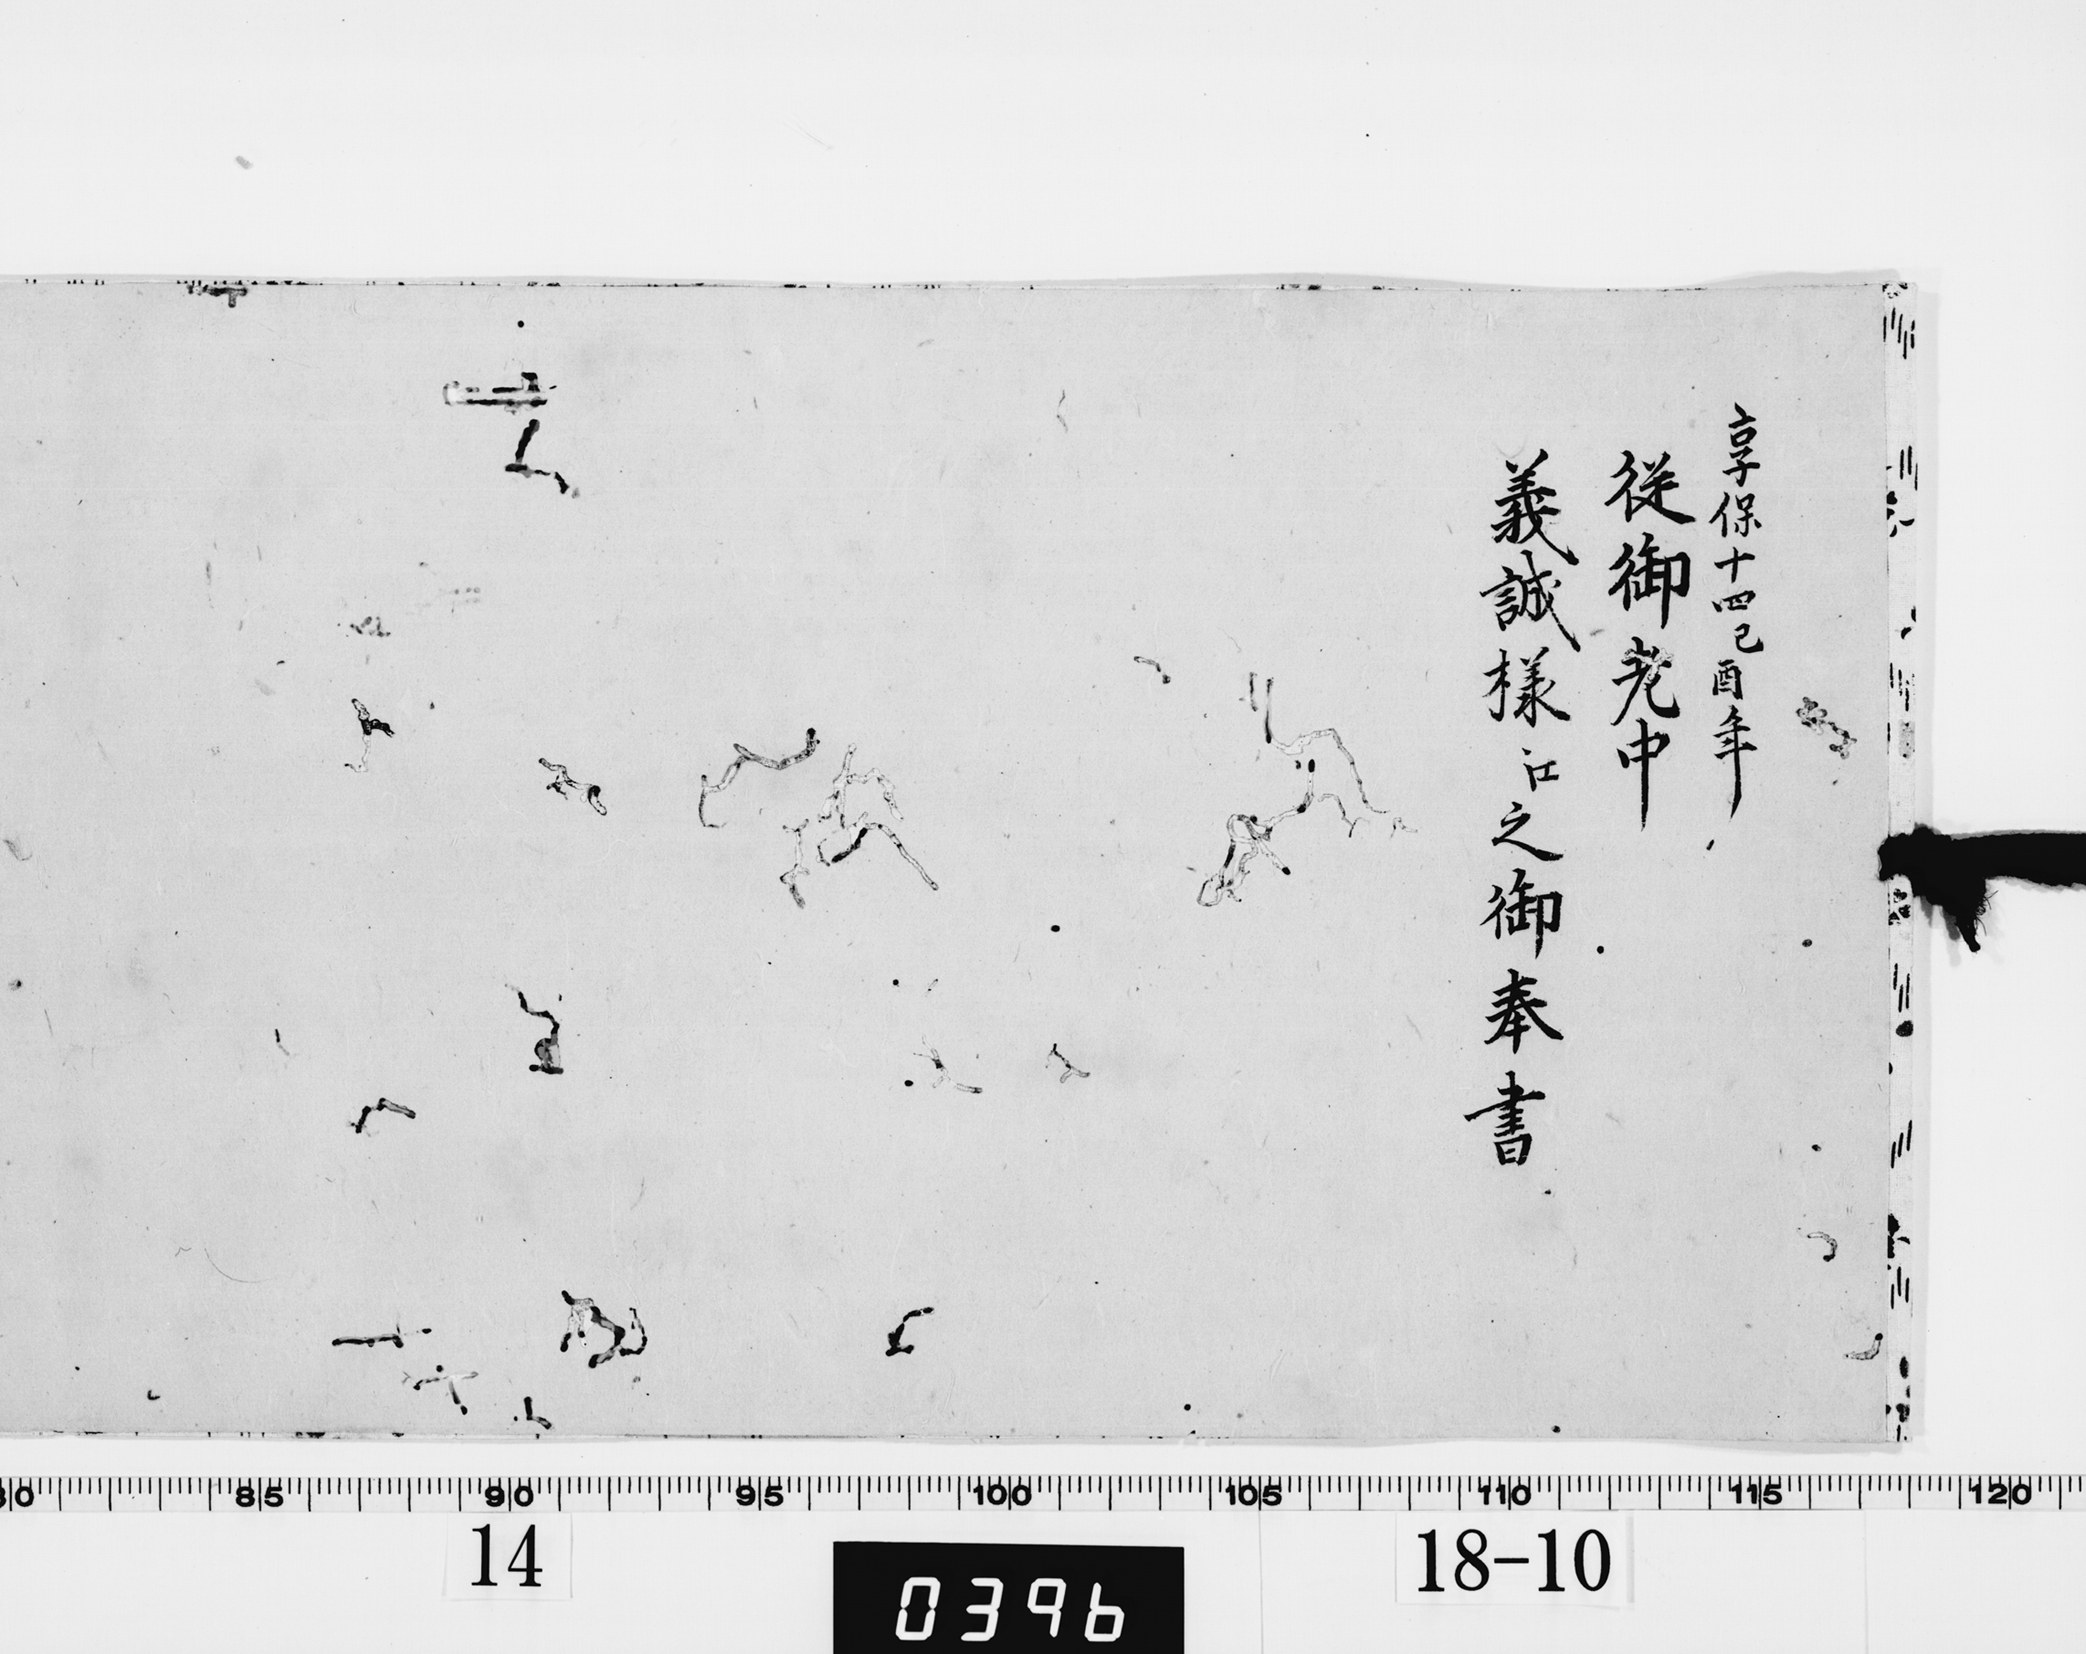 享保十四己酉年
従御老中
義誠様江之御奉書
80 85 90 95 100 105 110 115 120
14
0396
18-10